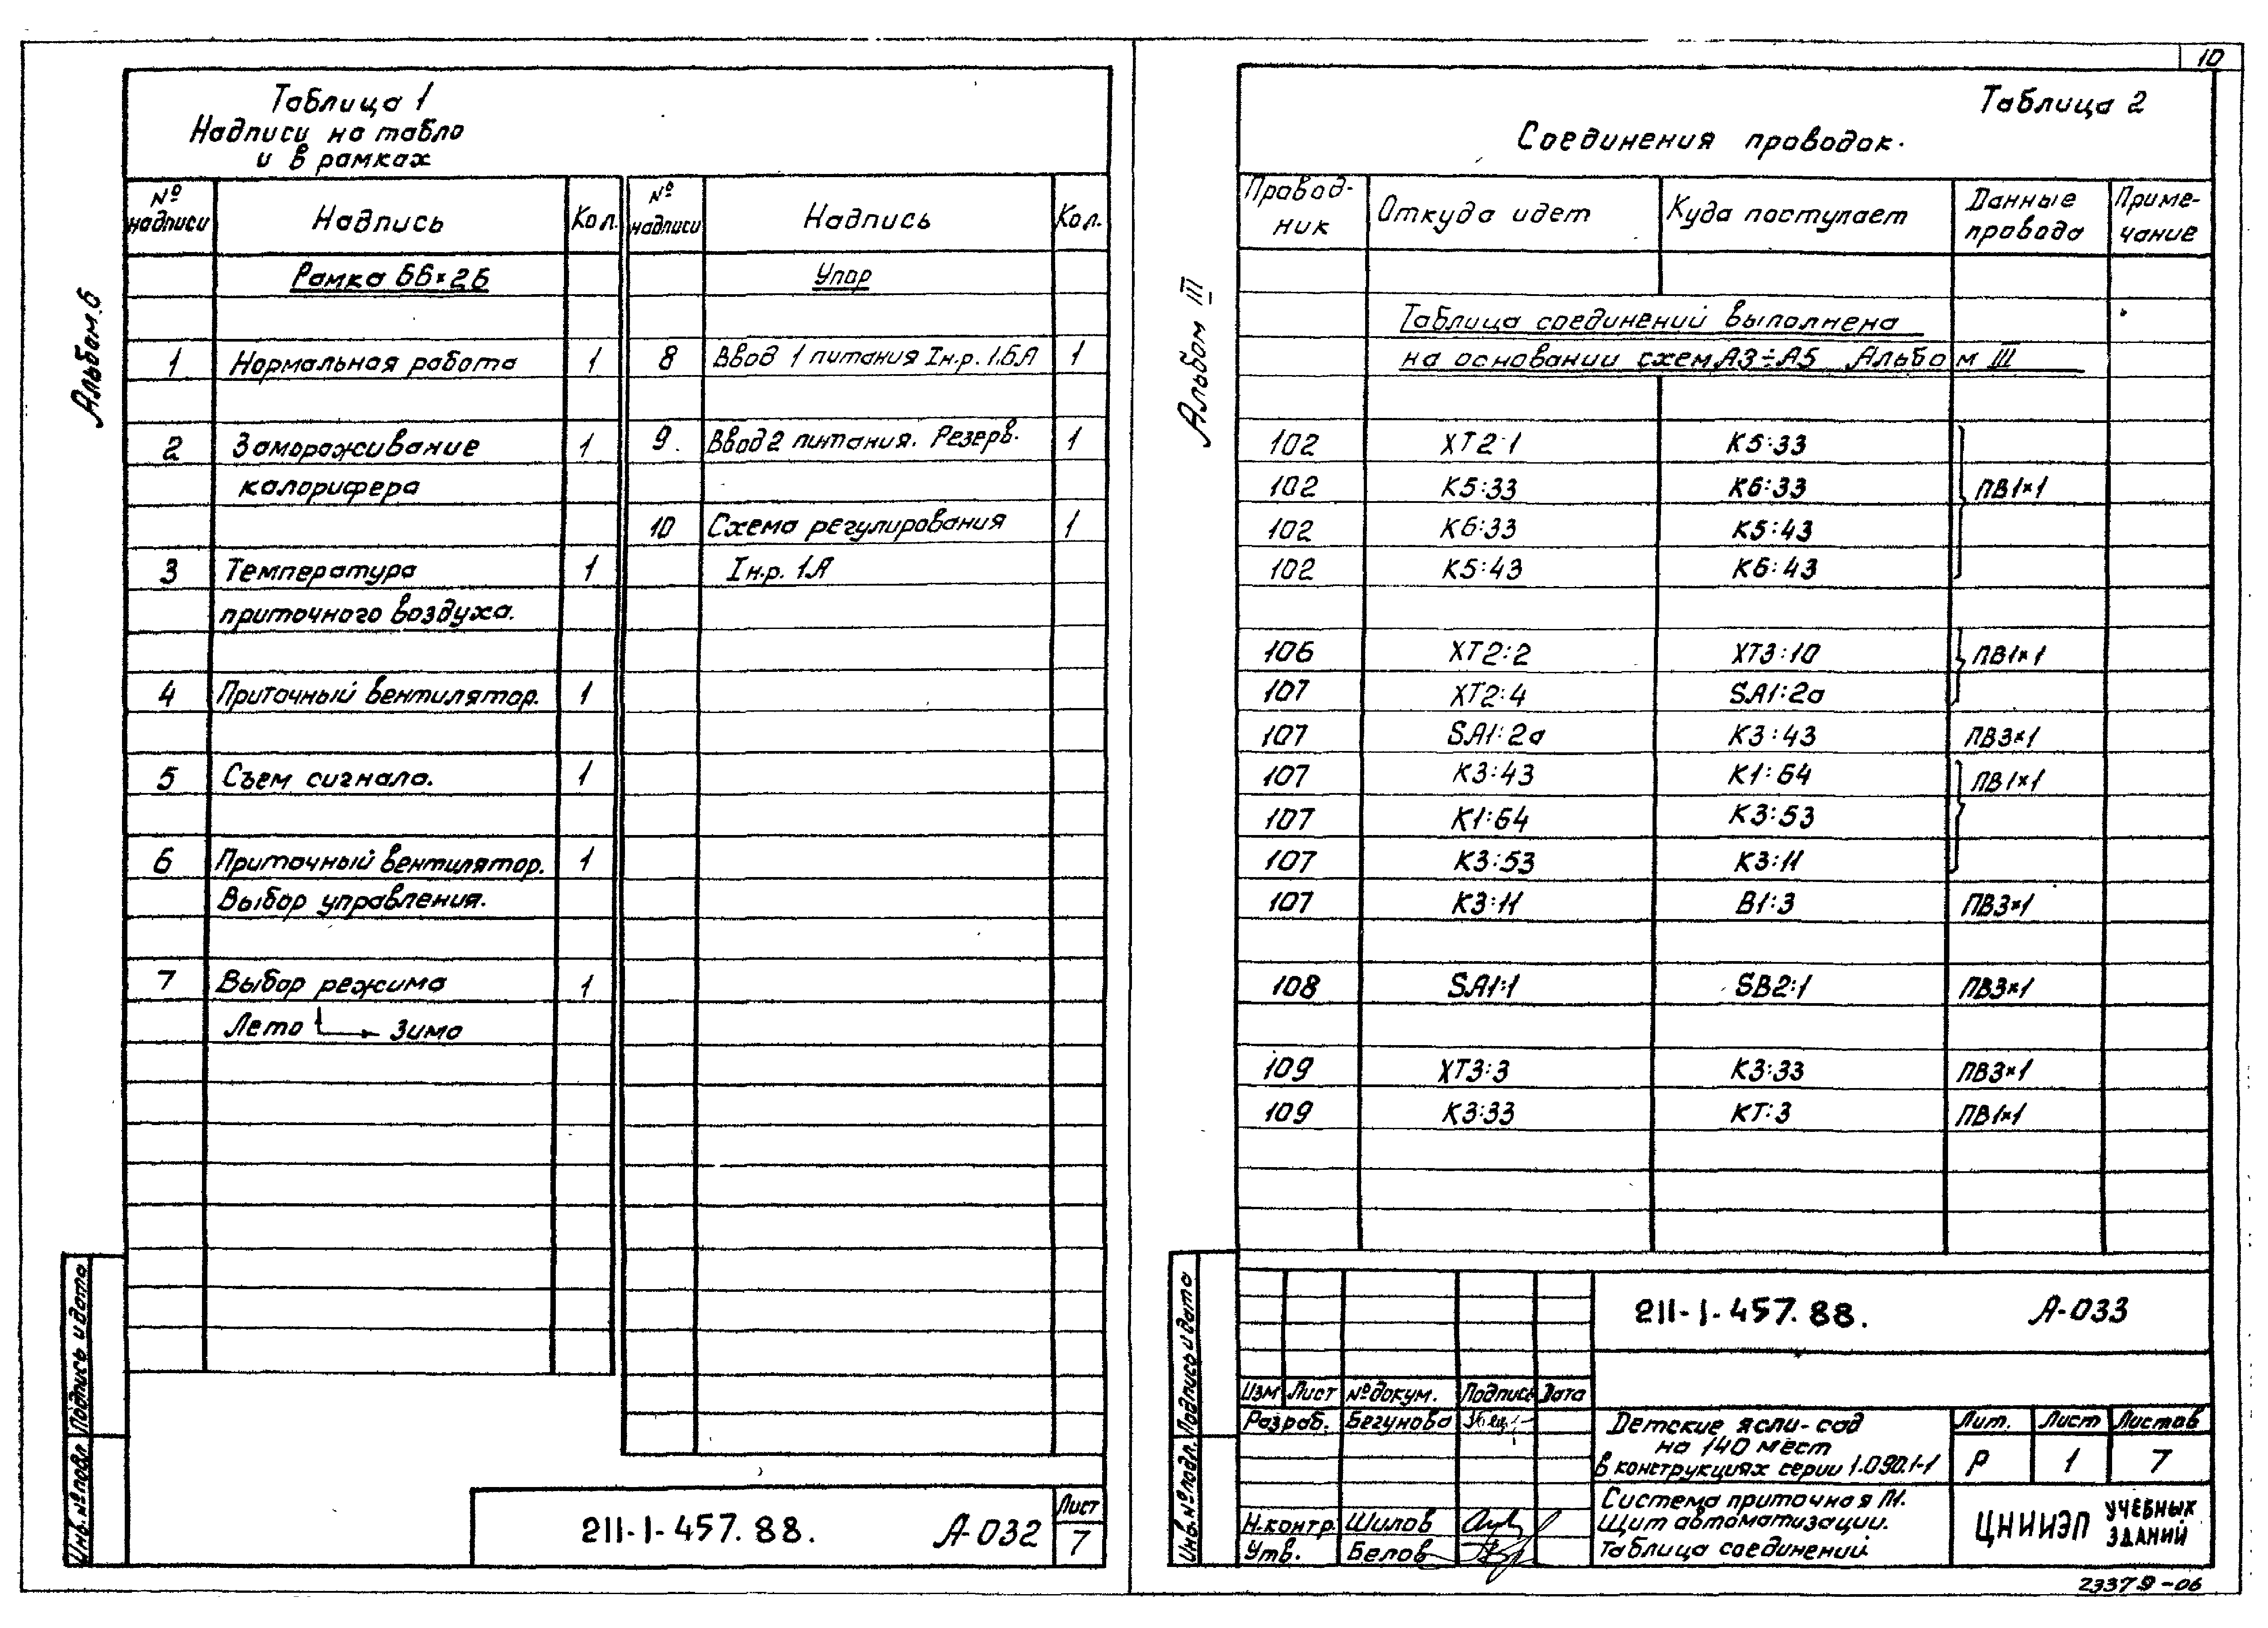 10
Альбом.6
Таблица 1
Надписи на табло
и в рамках
№ надписи Надпись Кол. № надписи Надпись Кол.
Рамка 66×26 Упор
1 Нормальная работа 1 8 Ввод 1 питания Iн.р. 1.6.А 1
2 Замораживание 1 9. Ввод 2 питания. Резерв. 1
калорифера
10 Схема регулирования 1
3 Температура 1 Iн.р. 1.А
приточного воздуха.
4 Приточный вентилятор. 1
5 Съем сигнала. 1
6 Приточный вентилятор. 1
Выбор управления.
7 Выбор режима 1
Лето Зима
Инв.№подл. Подпись и дата
211-1-457.88. А-032
Лист
7
Альбом III
Таблица 2
Соединения проводок.
Провод-ник Откуда идет Куда поступает Данные провода Приме-чание
Таблица соединений выполнена
на основании схем А3÷А5 Альбом III
102 XT2:1 K5:33
102 K5:33 K6:33 ПВ1×1
102 K6:33 K5:43
102 K5:43 K6:43
106 XT2:2 XT3:10 ПВ1×1
107 XT2:4 SA1:2а
107 SA1:2а K3:43 ПВ3×1
107 K3:43 K1:64 ПВ1×1
107 K1:64 K3:53
107 K3:53 K3:11
107 K3:11 B1:3 ПВ3×1
108 SA1:1 SB2:1 ПВ3×1
109 XT3:3 K3:33 ПВ3×1
109 K3:33 KT:3 ПВ1×1
Инв.№подл. Подпись и дата
211-1-457.88. А-033
Изм Лист № докум. Подпись Дата
Разраб. Бегунова
Н.контр. Шилов
Утв. Белов
Детские ясли-сад
на 140 мест
в конструкциях серии 1.090.1-1
Лит. Лист Листов
Р 1 7
Система приточная П1.
Щит автоматизации.
Таблица соединений
ЦНИИЭП УЧЕБНЫХ ЗДАНИЙ
23379-06